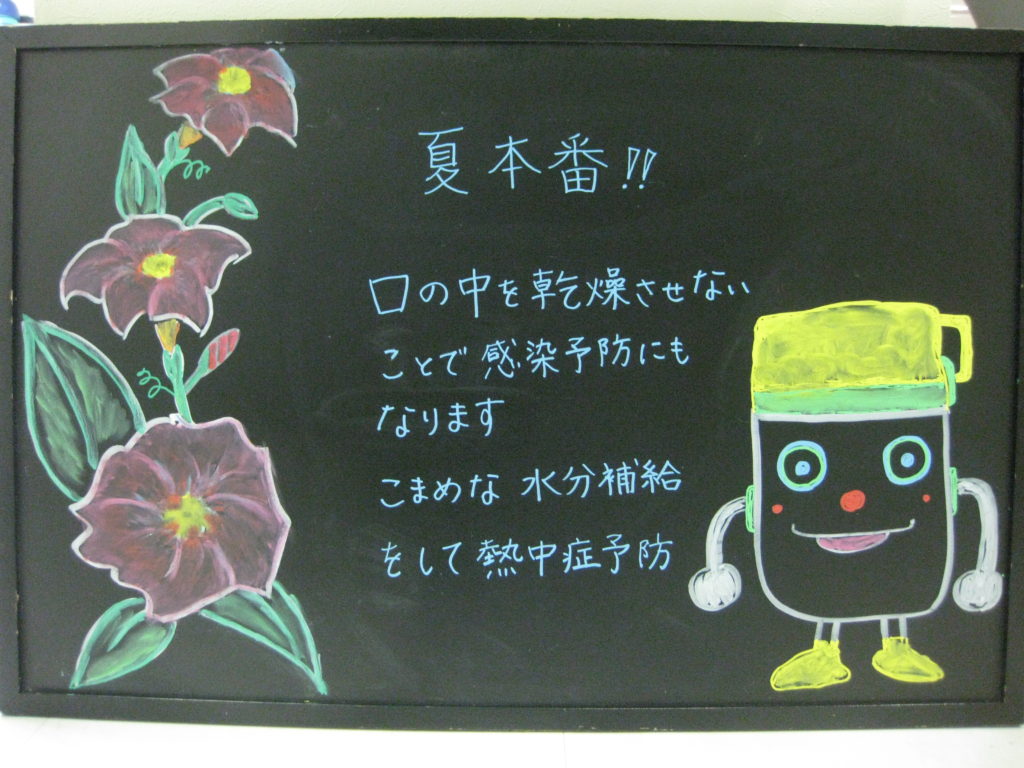 夏本番!!
口の中を乾燥させない
ことで感染予防にも
なります
こまめな 水分補給
をして熱中症予防